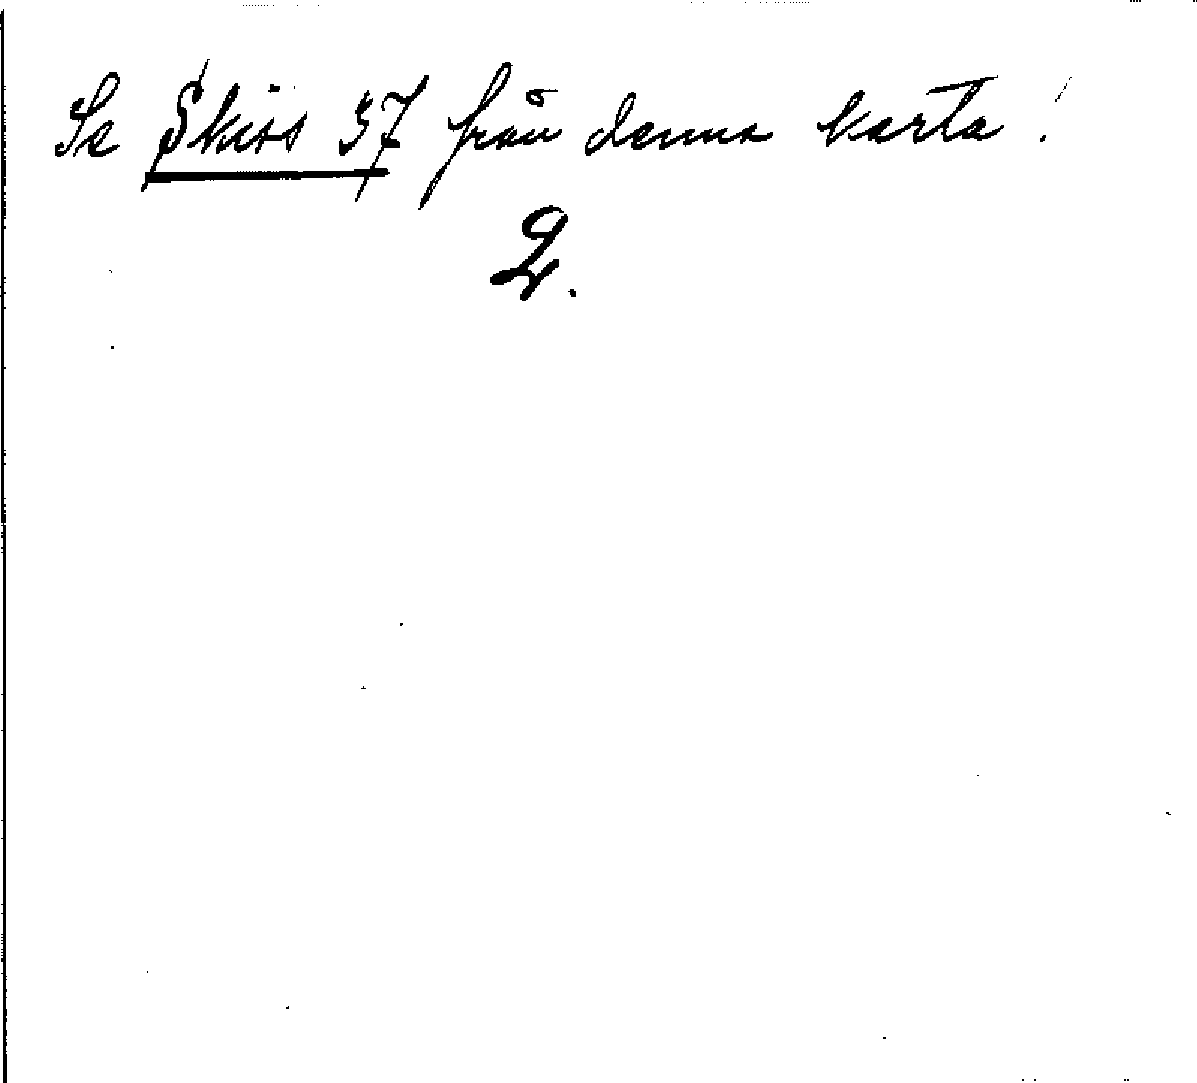 Se Skiss 37 från denna karta!
2.